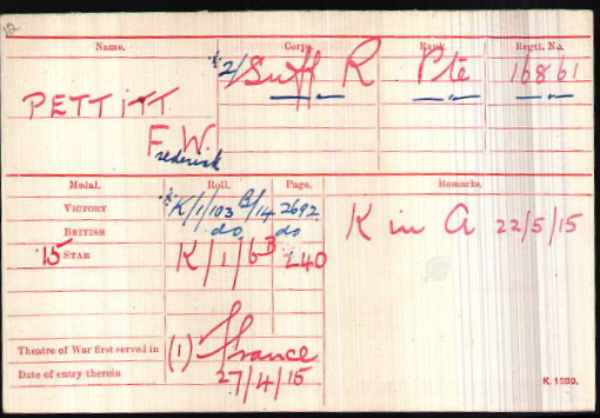 Name. Corps. Rank. Regtl. No.
*2/Suff R Pte 16861
PETTITT
F. W.
rederick
Medal. Roll. Page. Remarks.
VICTORY *K/1/103 B/14 2692
BRITISH do do
K in A 22/5/15
'15 STAR K/1/6B 240
Theatre of War first served in (1) France
Date of entry therein 27/4/15
K. 1380.